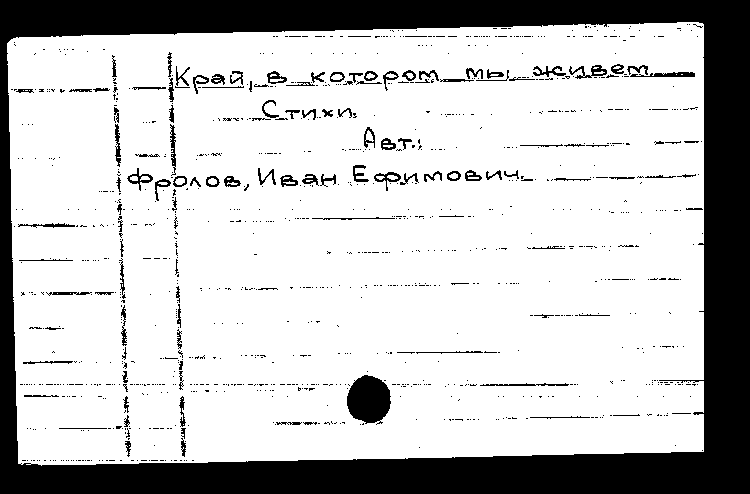 Край, в котором мы живем
Стихи.
Авт.:
Фролов, Иван Ефимович.